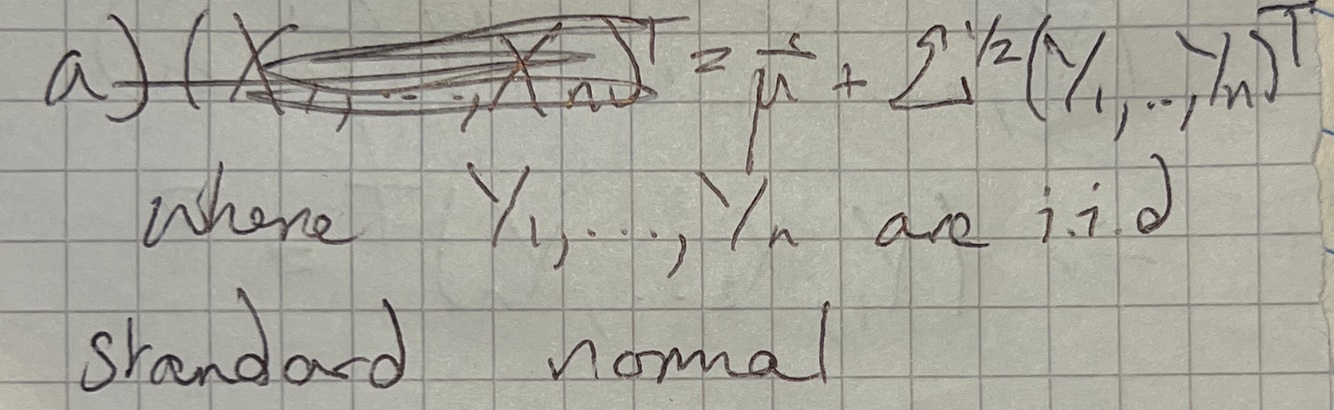 a) (X₁, ..., Xₙ)ᵀ = μ⃗ + Σ^1/2 (Y₁, .., Yₙ)ᵀ
where Y₁, ...., Yₙ are i.i.d
standard normal